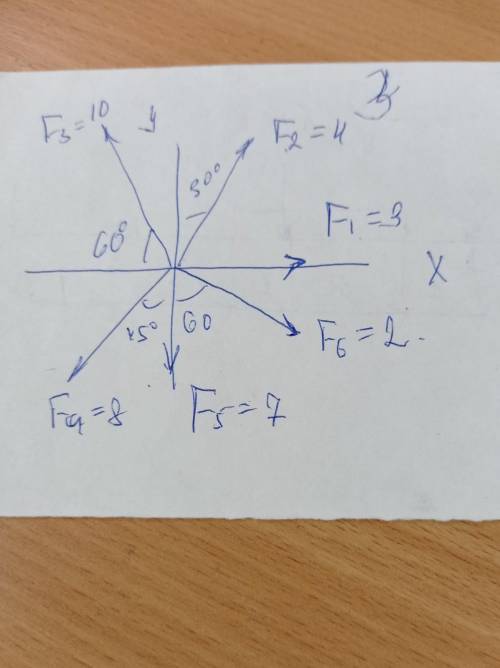 F3=10
y
F2=4
30°
60°
F1=3
X
45°
60
F6=2.
F4=8
F5=7